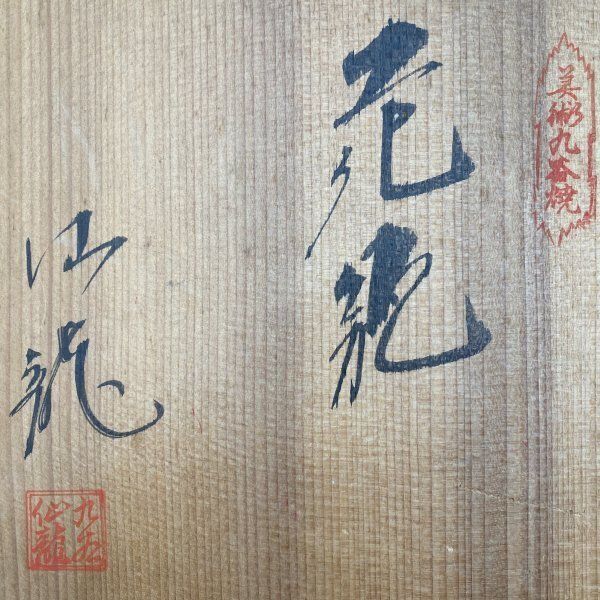 美術九谷焼
花瓶
仙龍
九谷
仙龍